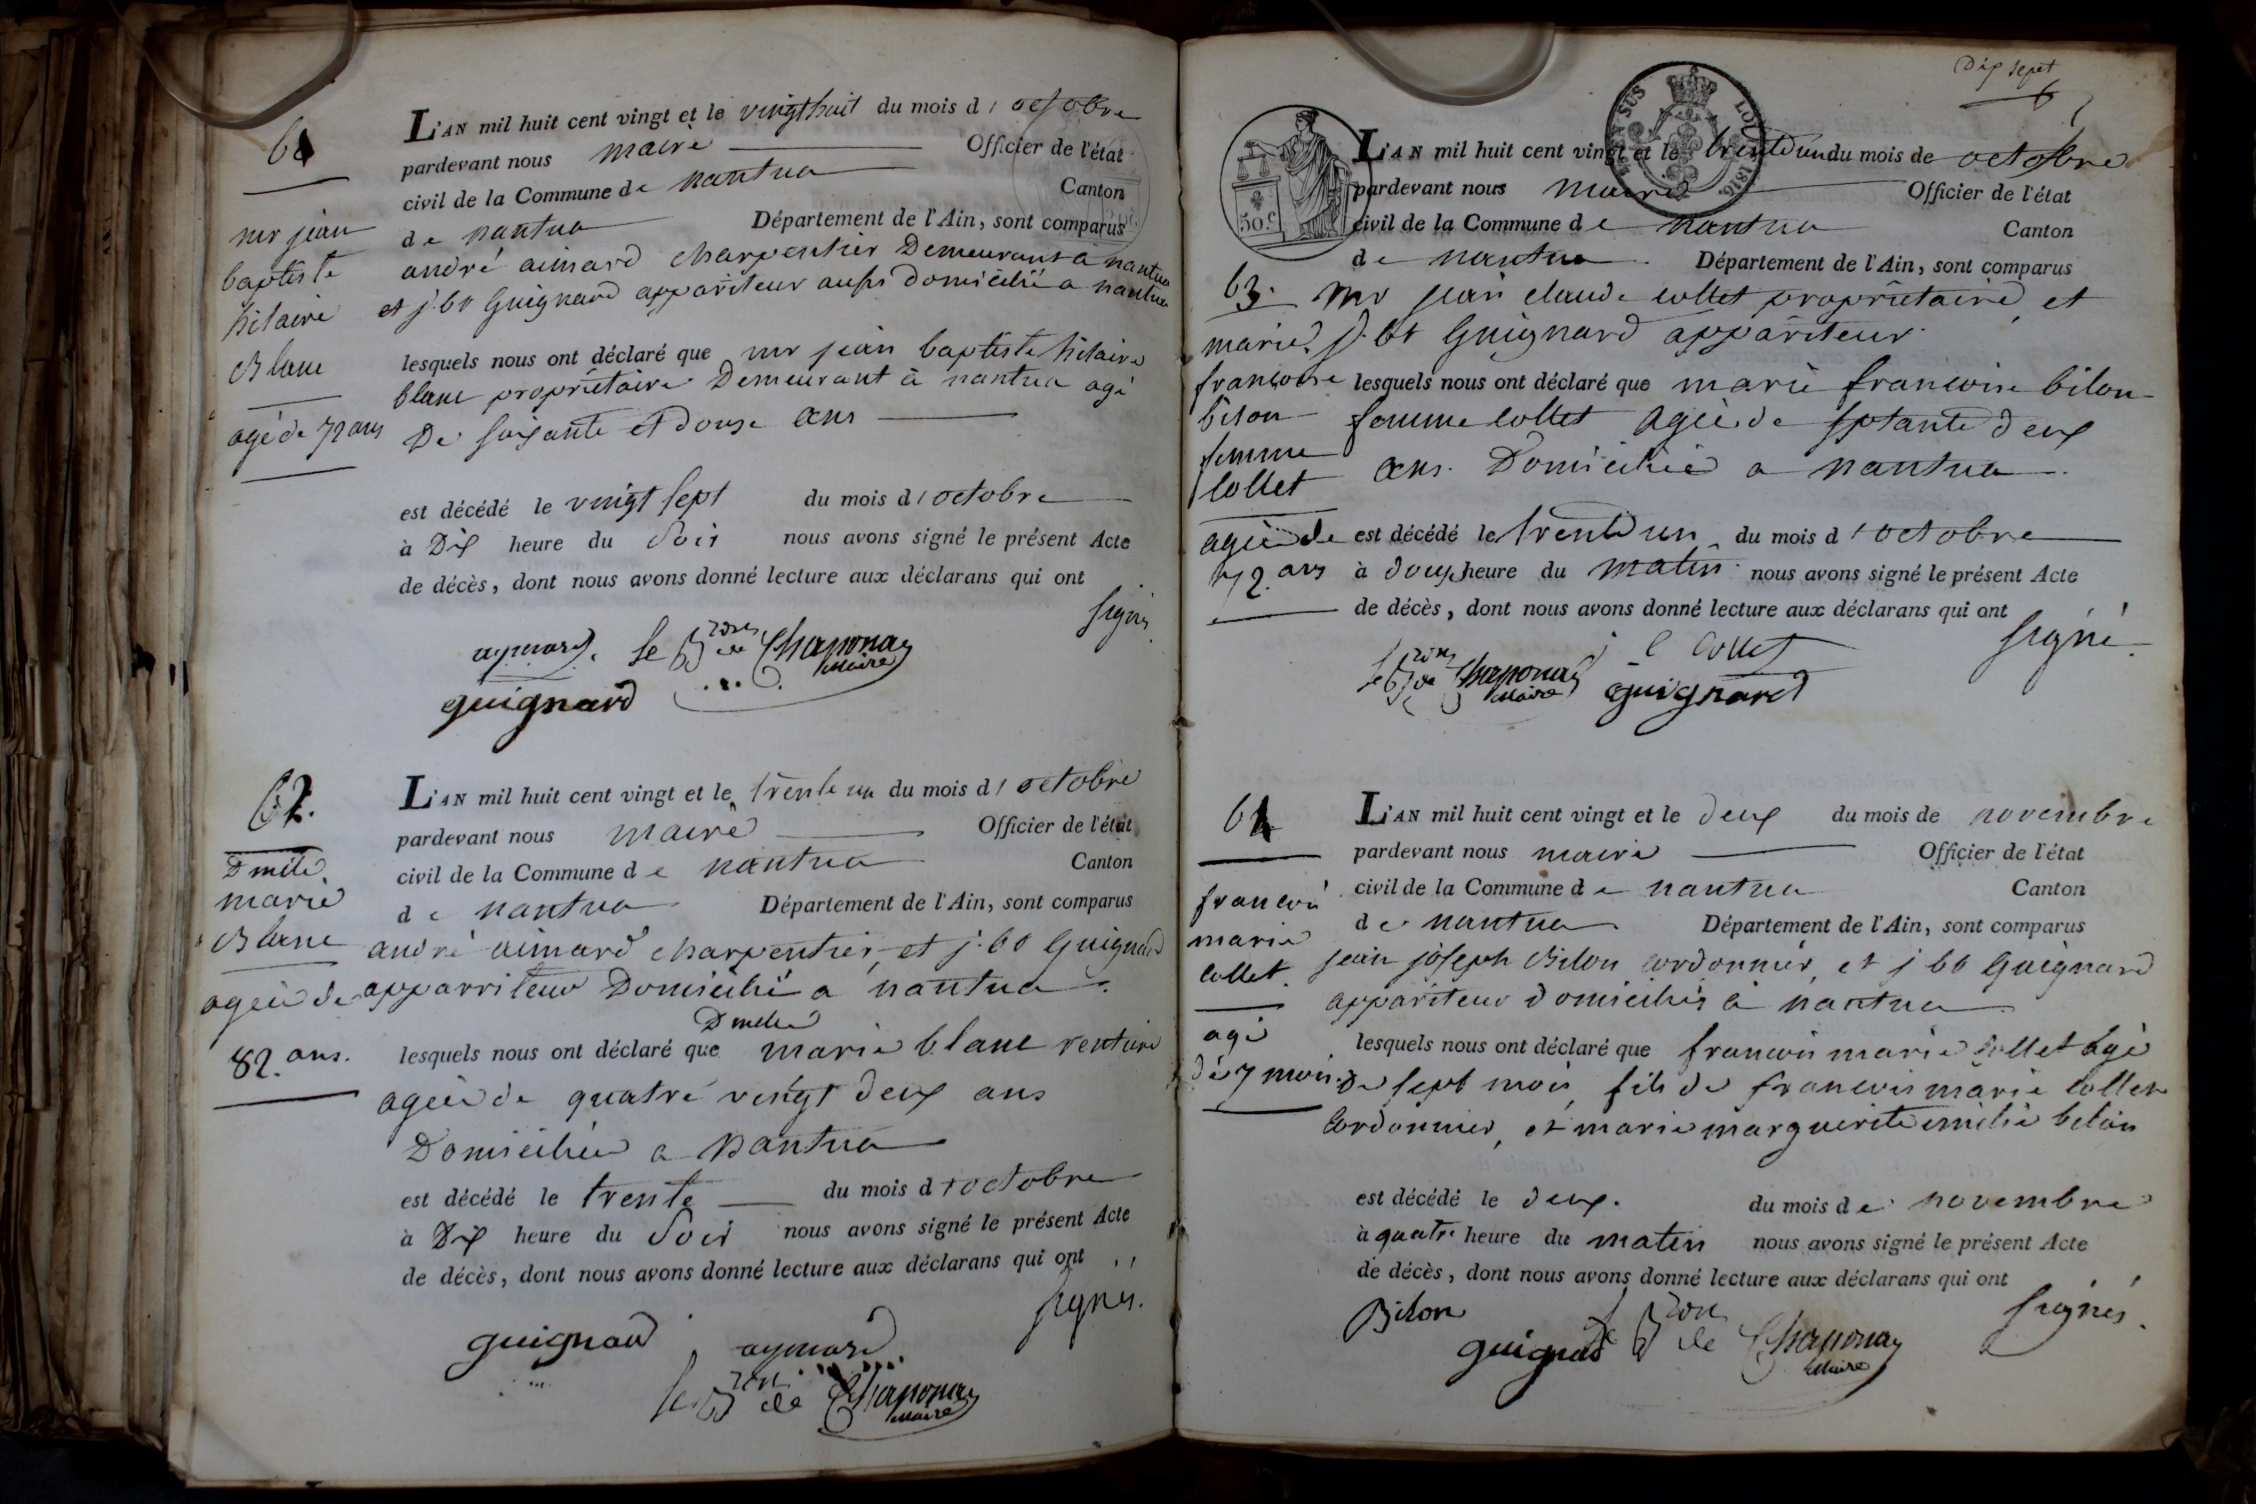 61
mr jean
baptiste
hilaire
Blanc
agé de 72 ans
L'AN mil huit cent vingt et le vingt huit du mois d'octobre
pardevant nous maire Officier de l'état
civil de la Commune de nantua Canton
de nantua Département de l'Ain, sont comparus
andré aimard charpentier Demeurant a nantua
et j. bt Guignard appariteur aussi domicilié a nantua
lesquels nous ont déclaré que mr jean baptiste hilaire
blanc propriétaire Demeurant à nantua agé
De soixante et douze ans
est décédé le vingt sept du mois d'octobre
à Dix heure du Soir nous avons signé le présent Acte
de décès, dont nous avons donné lecture aux déclarans qui ont
signés
aymard. le Bon de Chaponay
Maire
guignard
62.
Dmelle
marie
Blanc
agée de
82. ans.
L'AN mil huit cent vingt et le trente un du mois d'octobre
pardevant nous maire Officier de l'état
civil de la Commune de nantua Canton
de nantua Département de l'Ain, sont comparus
andré aimard charpentier, et j. bt Guignard
apparriteur Domicilié a nantua.
Dmelle
lesquels nous ont déclaré que marie blanc rentiere
agée de quatre vingt deux ans
Domiciliée a nantua
est décédé le trente du mois d'octobre
à Dix heure du Soir nous avons signé le présent Acte
de décès, dont nous avons donné lecture aux déclarans qui ont
signés.
guignard aymard
le Bon de Chaponay
Maire
Dix sept
50 c.
LOI 1816.
63.
marie
francoise
bilon
femme
Collet
agée de
72. ans
L'AN mil huit cent vingt et le trente un du mois de octobre
pardevant nous maire Officier de l'état
civil de la Commune de nantua Canton
de nantua. Département de l'Ain, sont comparus
mr jean claude collet propriétaire, et
j. bt Guignard appariteur.
lesquels nous ont déclaré que marie francoise bilon
femme collet agée de septante deux
ans. Domiciliée a nantua.
est décédé le trente un du mois d'octobre
à douze heure du matin nous avons signé le présent Acte
de décès, dont nous avons donné lecture aux déclarans qui ont
signé.
Collet
le Bon de Chaponay
Maire
guignard
64
francois
marie
collet.
agé
de 7 mois.
L'AN mil huit cent vingt et le deux du mois de novembre
pardevant nous maire Officier de l'état
civil de la Commune de nantua Canton
de nantua Département de l'Ain, sont comparus
jean joseph Bilon cordonnier, et j bt Guignard
appariteur domiciliés à nantua
lesquels nous ont déclaré que francois marie Collet agé
de sept mois, fils de francois marie collet
Cordonnier, et marie marguerite emelie bilon
est décédé le deux. du mois de novembre
à quatre heure du matin nous avons signé le présent Acte
de décès, dont nous avons donné lecture aux déclarans qui ont
signés.
Bilon
guignard le Bon de Chaponay
Maire